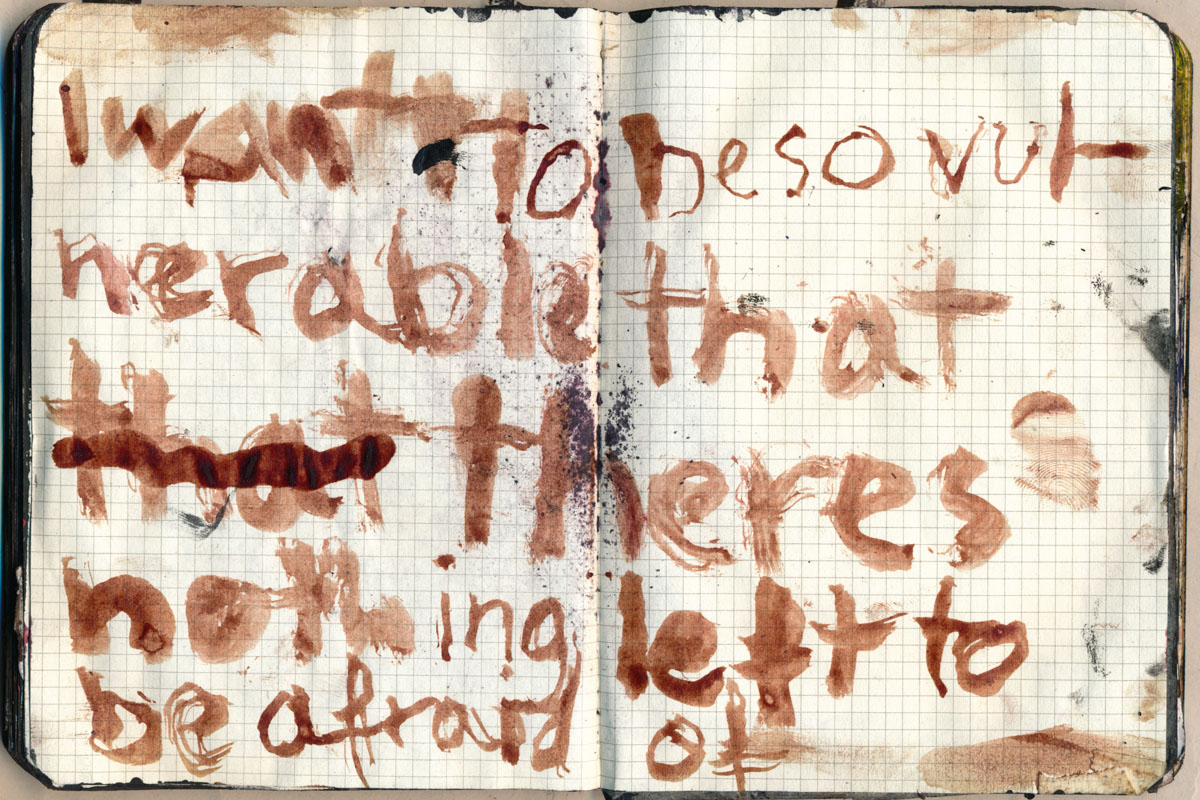 I want to be so vul-
nerable that
that theres
nothing left to
be afraid of